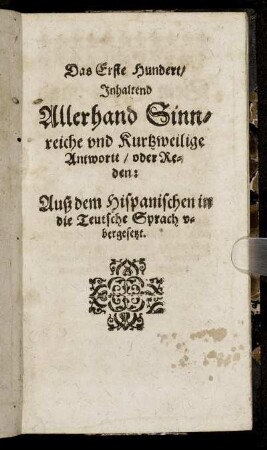 Das Erste Hundert/
Inhaltend
Allerhand Sinn-
reiche vnd Kurtzweilige
Antwortt / oder Re-
den:
Auß dem Hispanischen in
die Teutsche Sprach v-
bergesetzt.